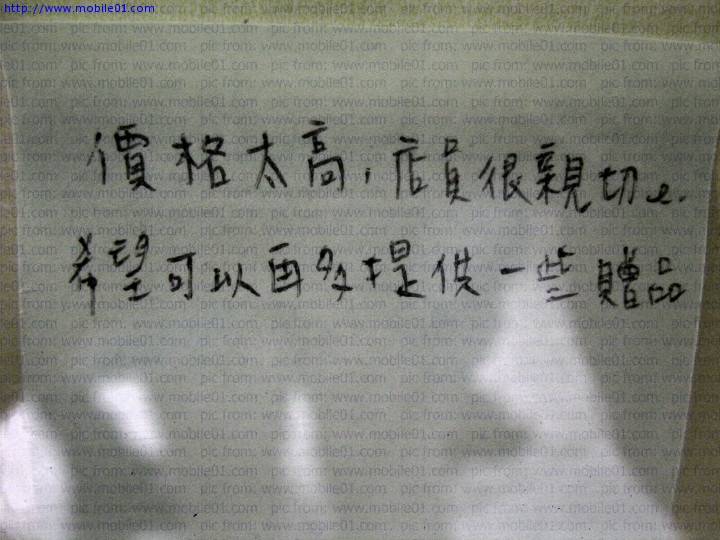 http://www.mobile01.com
價格太高，店員很親切
希望可以再多提供一些贈品
pic from: www.mobile01.com